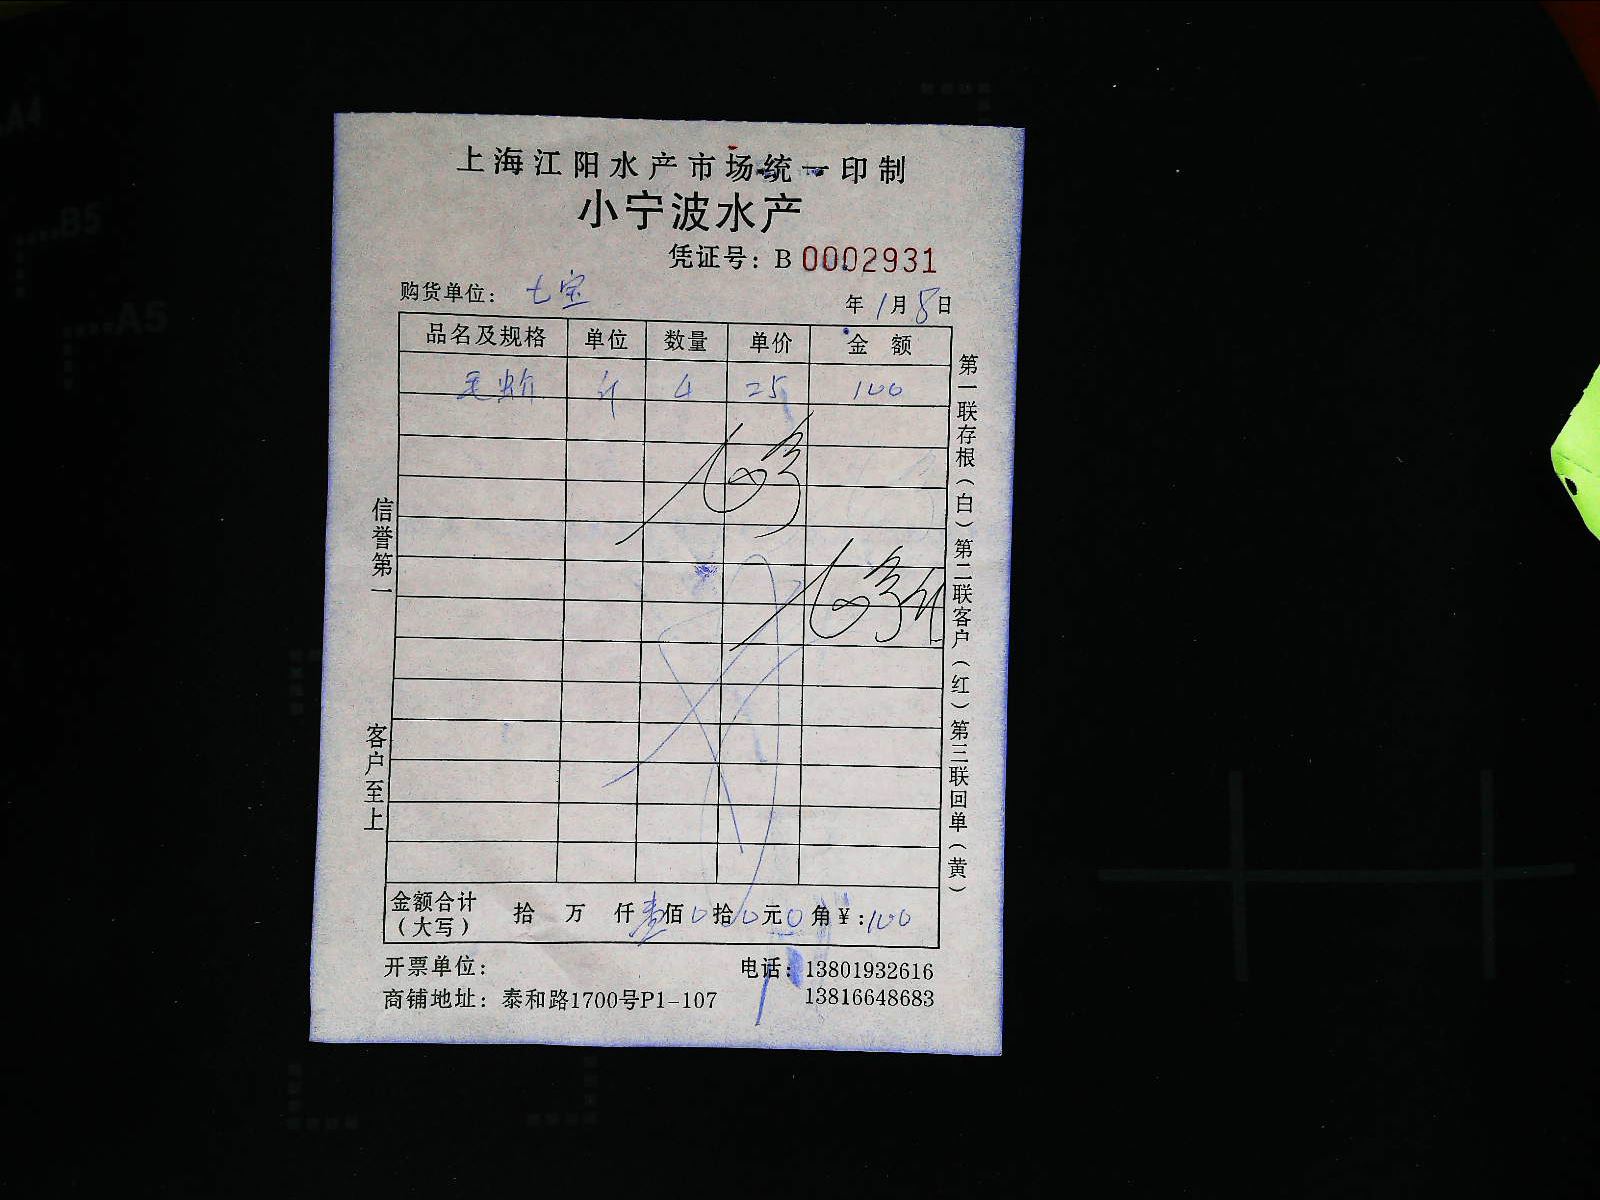 上海江阳水产市场统一印制
小宁波水产
凭证号：B 0002931
购货单位： 七宝 年 1月 8日
品名及规格 单位 数量 单价 金 额
毛蚧 斤 4 25 100
信誉第一
客户至上
第一联存根（白）第二联客户（红）第三联回单（黄）
金额合计（大写） 拾 万 仟 壹佰 0拾 0元 0角 ¥：100
开票单位： 电话：13801932616
商铺地址：泰和路1700号P1-107 13816648683